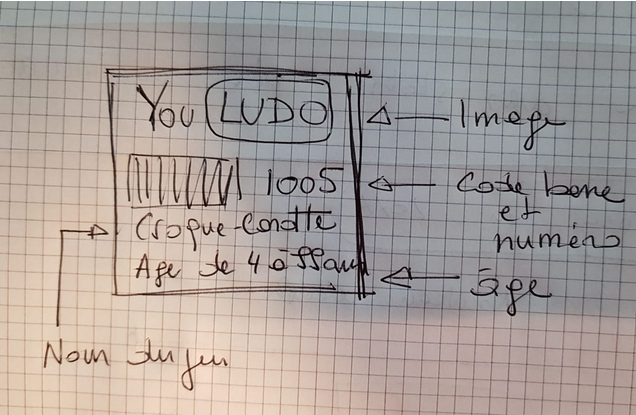 You LUDO
Image
1005
Code barre
et
numéro
Croque-Carotte
Age de 4 à 99 ans
âge
Nom du jeu